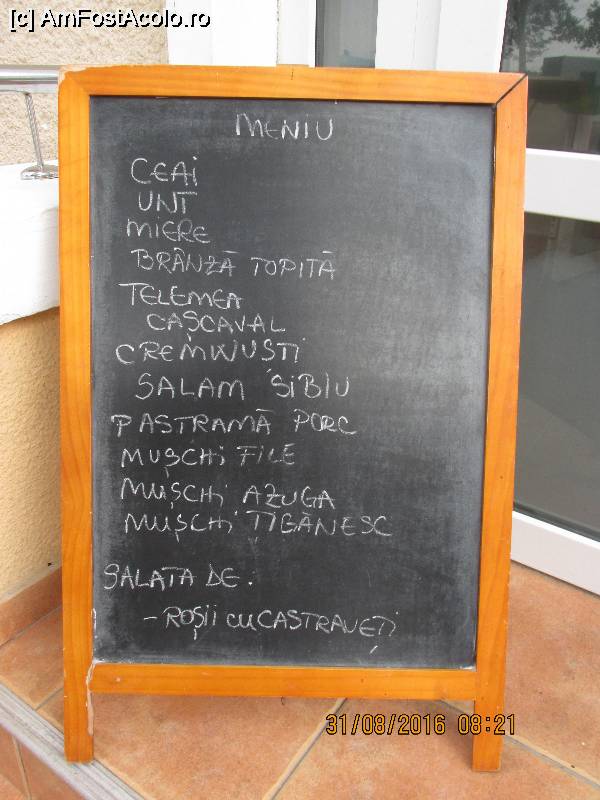 [c] AmFostAcolo.ro
MENIU
CEAI
UNT
MIERE
BRÂNZĂ TOPITĂ
TELEMEA
CAȘCAVAL
CREMWUȘTI
SALAM SIBIU
PASTRAMĂ PORC
MUȘCHI FILE
MUȘCHI AZUGA
MUȘCHI ȚIGĂNESC
SALATA DE:
- ROȘII CU CASTRAVEȚI
31/08/2016 08:21